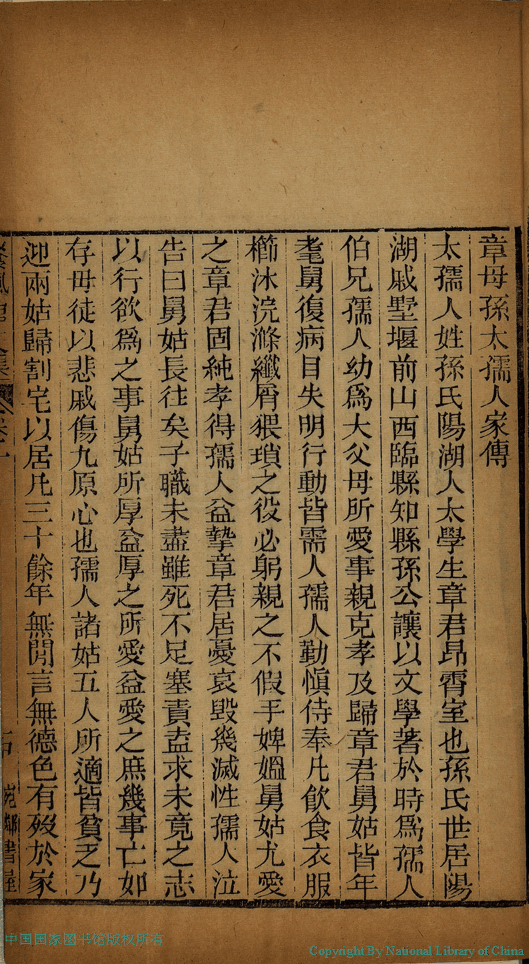 章母孫太孺人家傳
太孺人姓孫氏陽湖人太學生章君昂霄室也孫氏世居陽
湖戚墅堰前山西臨縣知縣孫公讓以文學著於時爲孺人
伯兄孺人幼爲大父母所愛事親克孝及歸章君舅姑皆年
耄舅復病目失明行動皆需人孺人勤愼侍奉凡飲食衣服
櫛沐浣滌纖屑猥瑣之役必躬親之不假手婢媼舅姑尤愛
之章君固純孝得孺人益摯章君居憂哀毀幾滅性孺人泣
告曰舅姑長往矣子職未盡雖死不足塞責盍求未竟之志
以行欲爲之事舅姑所厚益厚之所愛益愛之庶幾事亡如
存毋徒以悲戚傷九原心也孺人諸姑五人所適皆貧乏乃
迎兩姑歸割宅以居凡三十餘年無閒言無德色有歿於家
宛鄰書屋
中国国家图书馆版权所有
Copyright By National Library of China